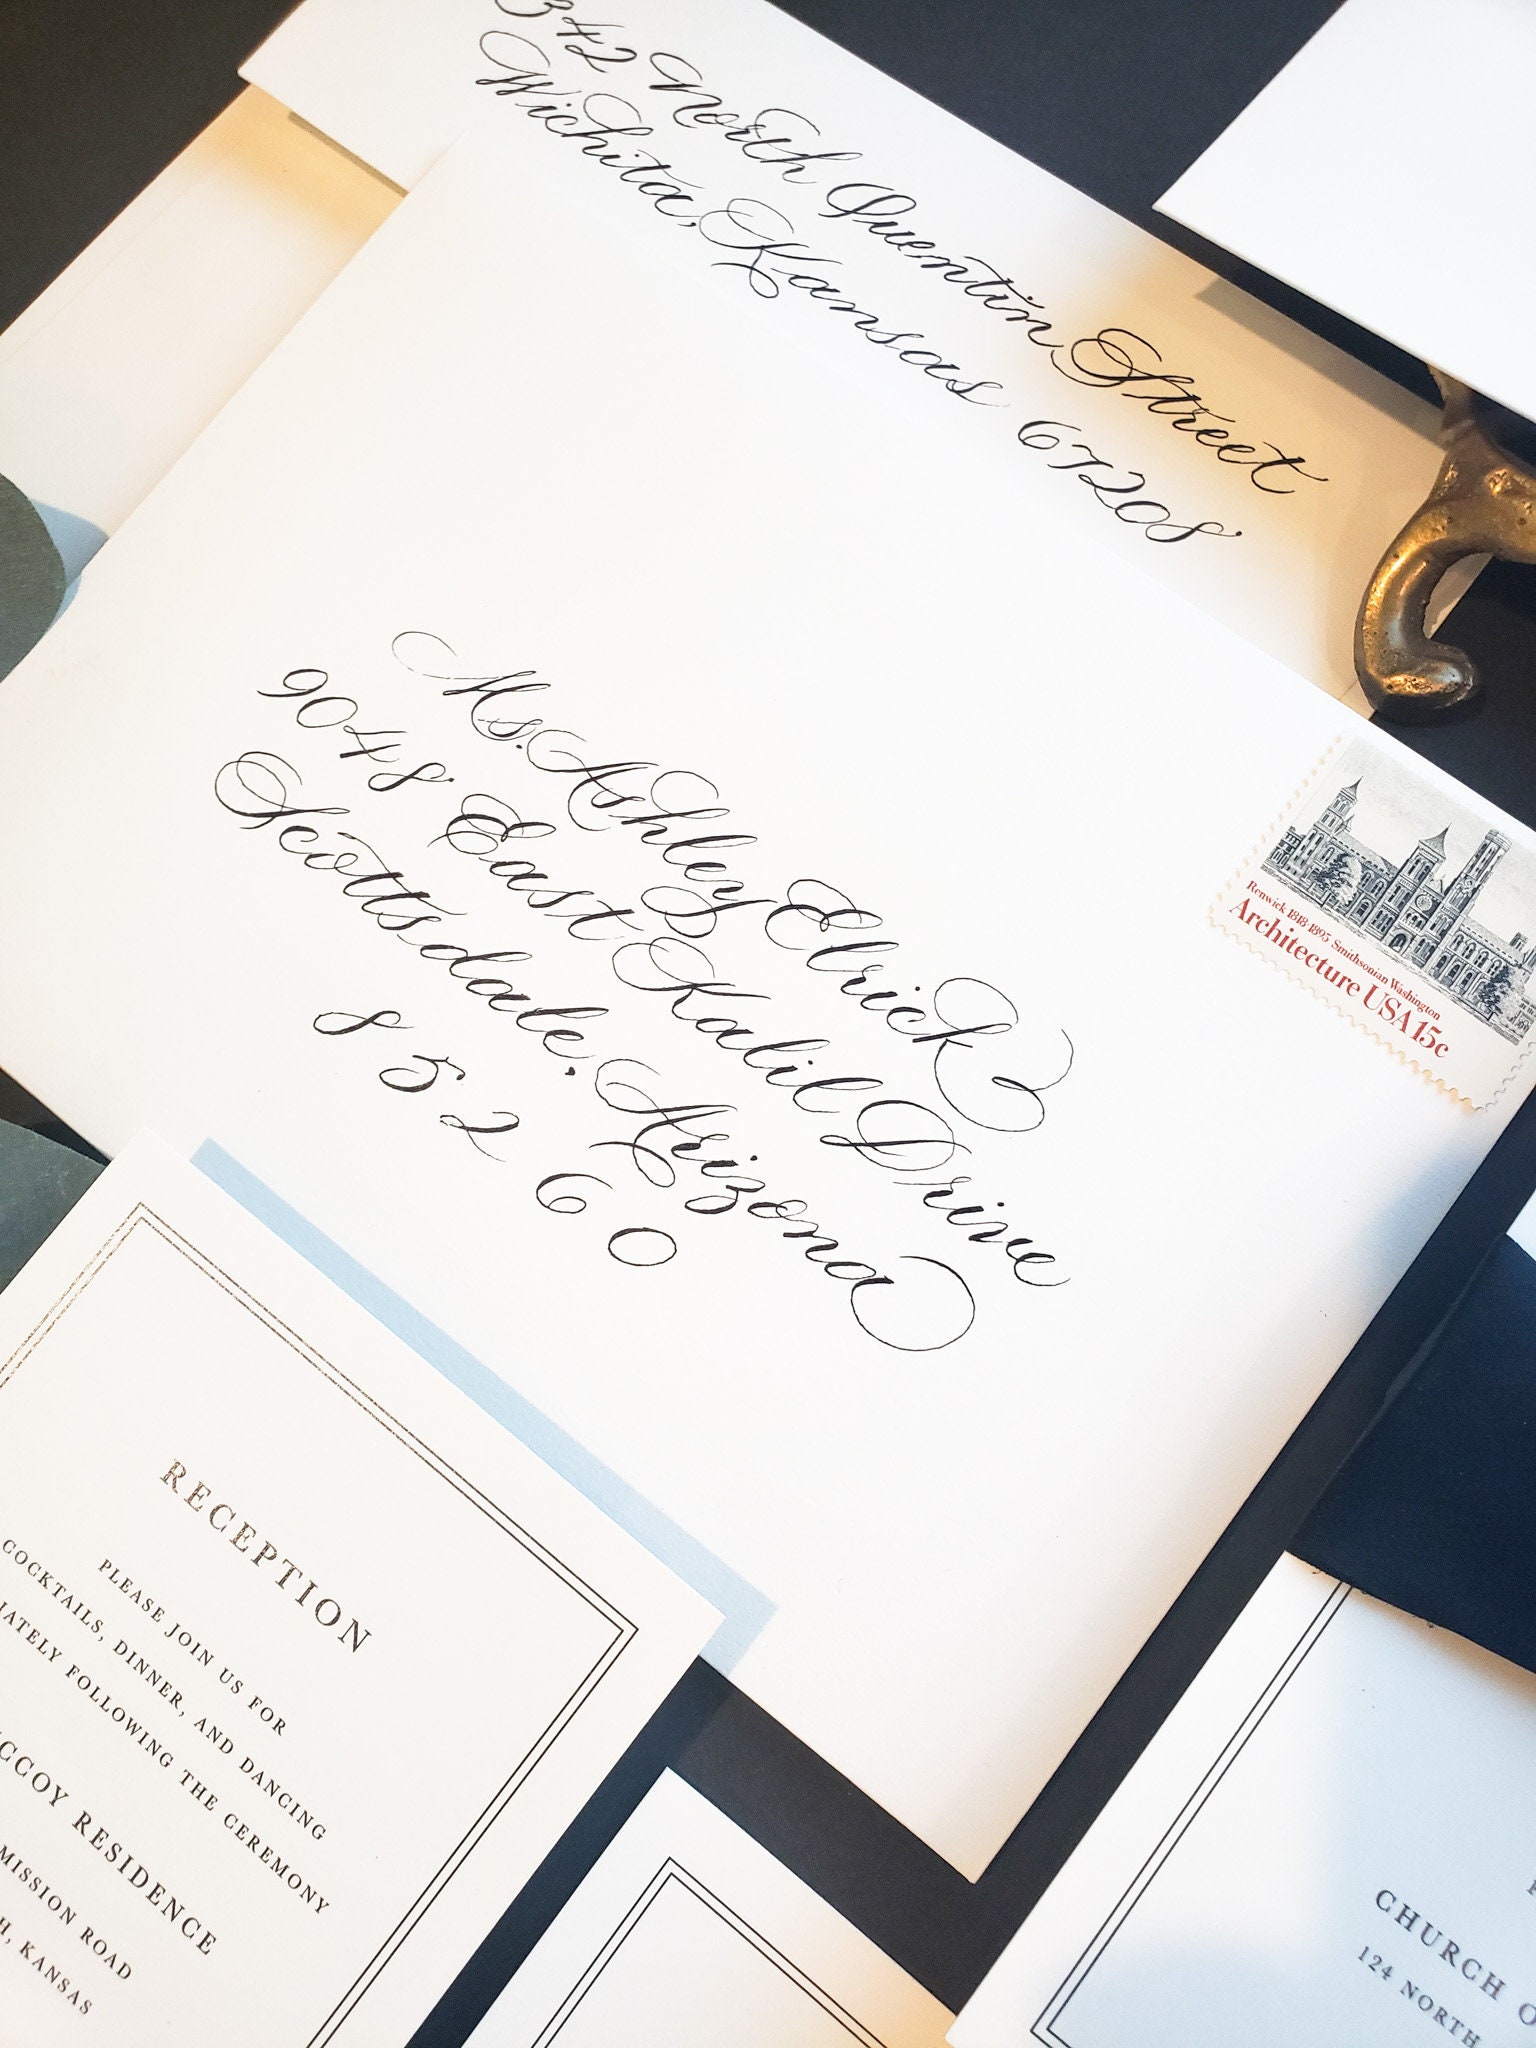 342 North Quentin Street
Wichita, Kansas 67208
Ms. Ashley Elrick
9048 East Kalil Drive
Scottsdale, Arizona
85260
Renwick 1818 1895 Smithsonian Washington
Architecture USA 15c
RECEPTION
PLEASE JOIN US FOR
COCKTAILS, DINNER, AND DANCING
FOLLOWING THE CEREMONY
RESIDENCE
MISSION ROAD
KANSAS
CHURCH
124 NORTH